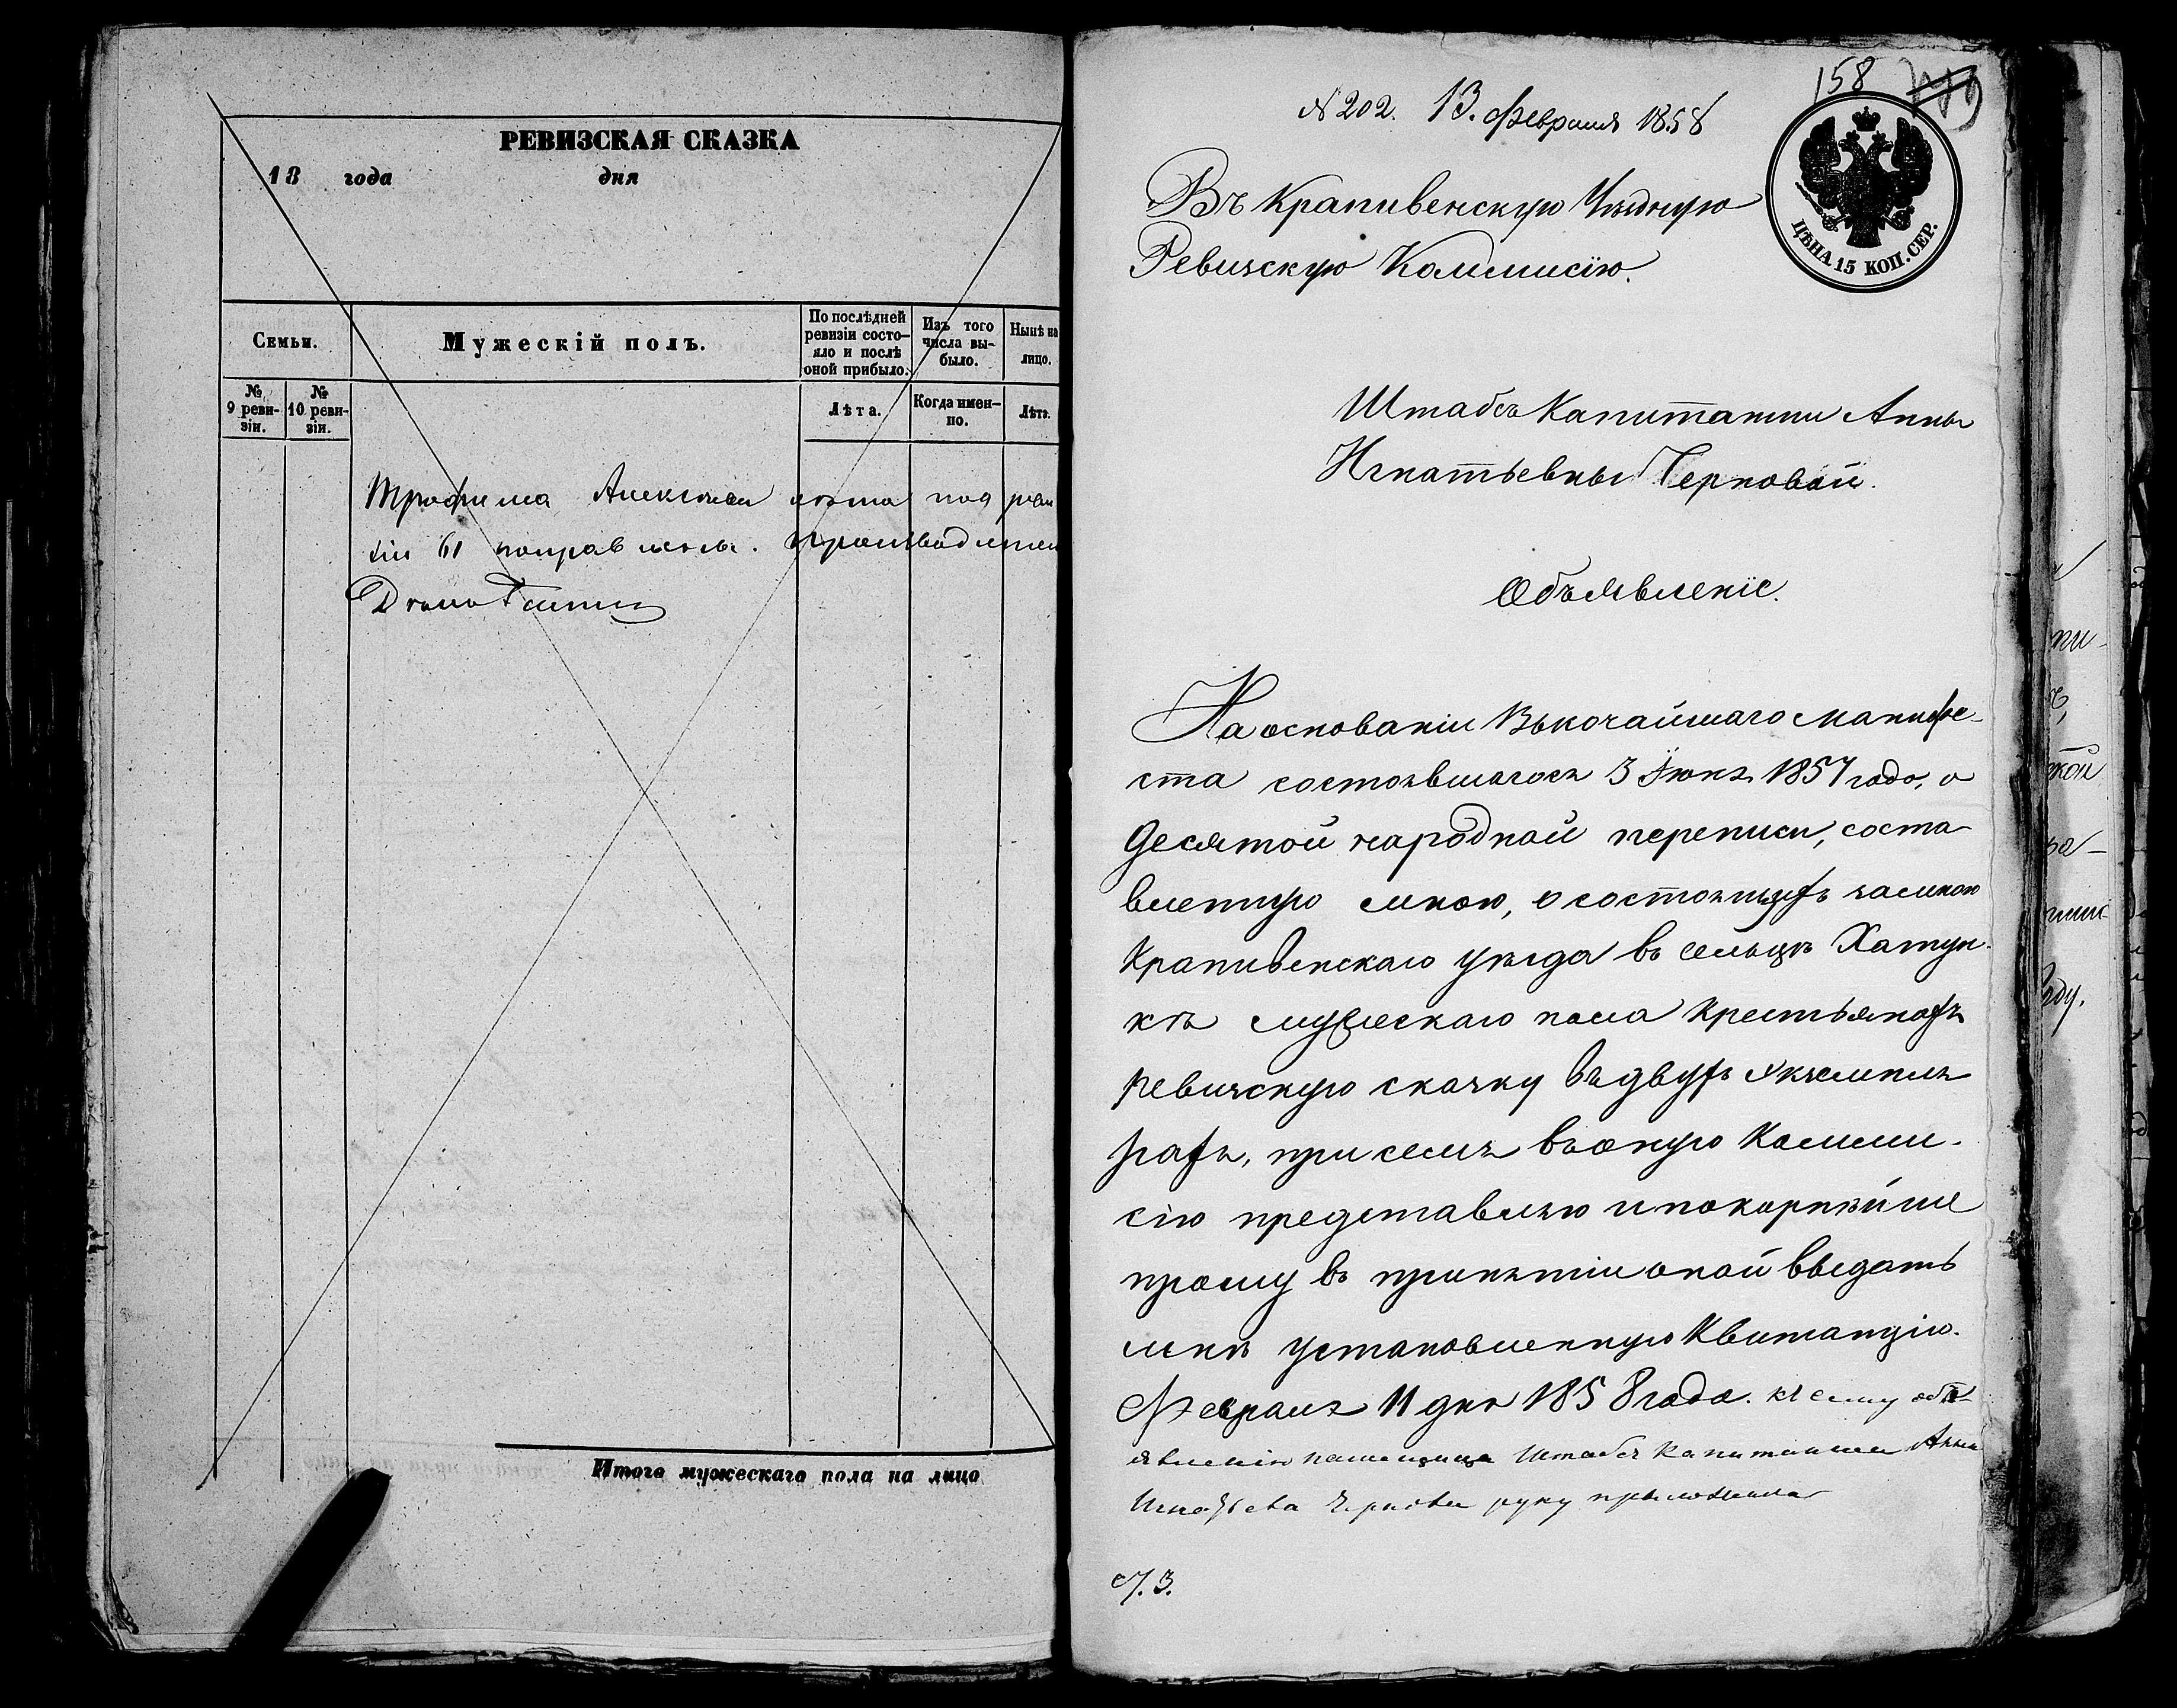 РЕВИЗСКАЯ СКАЗКА
18 года дня
Семьи.
Мужескій полъ.
По послѣдней ревизіи состо-
яло и послѣ оной прибыло.
Изъ того числа вы-
было.
Нынѣ на лицо.
№ 9 реви-
зіи.
№ 10 реви-
зіи.
Лѣта.
Когда имен-
но.
Лѣта.
Трофима Алексѣева лѣта по реви
зіи 61
Итого мужескаго пола на лицо
158
№ 202. 13. Февраля 1858
ЦѢНА 15 КОП. СЕР.
Въ Крапивенскую Уѣздную
Ревизскую Коммисію.
Штабсъ Капитанши Анны
Игнатьевны Черновой.
Объявленіе.
На основаніи Высочайшаго манифе-
ста состоявшагося 3 Іюня 1857 года, о
десятой народной переписи, соста-
вленную мною, о состоящихъ за мною
Крапивенскаго уѣзда въ сельцѣ Хатун-
кѣ мужескаго пола крестьянахъ
ревизскую сказку въ двухъ экземпля
рахъ, при семъ въ оную Комми-
сію представляю и покорнѣйше
прошу въ принятіи оной выдать
мнѣ установленную Квитанцію.
Февраля 11 дня 1858 года. къ сему объ-
явленію помещица Штабсъ Капитанша Анна
Чернова руку приложила